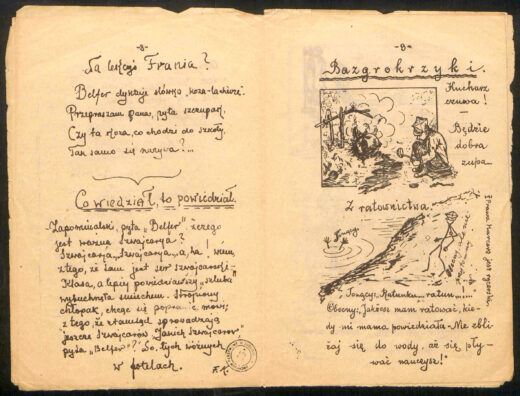 -8-
Na lekcji Frania?
Belfer dyktuje słówko "koza-la chèvre".
Przepraszam pana, pyta szczupak,
Czy ta koza, co chodzi do szkoły,
Tak samo się nazywa?...
Co wiedział, to powiedział.
Zapominalski, pyta "Belfer" z czego
jest ważna Szwajcarja?
Szwajcarja, Szwajcarja,... a, ha! wiem,
z tego, że tam jest ser szwajcarski
Klasa, a lepiej powiedziawszy
wybuchnęła śmiechem. Strapiony
chłopak, chcąc się poprawić mówi;
z tego, że stamtąd sprowadzają
jeszcze Szwajcarów. Jakich Szwajcarów
pyta "Belfer"? No, tych woźnych
w hotelach.
-9-
Bazgrokrzyki.
Kucharz
czuwa!
Będzie
dobra
zupa...
Z ratownictwa.
Tonący: Ratunku... ratun......
Obecny: Jakżesz mam ratować, kie-
dy mi mama powiedziała - Nie zbli-
żaj się do wody, aż się pły-
wać nauczysz!